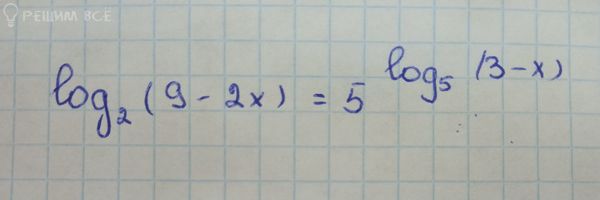 РЕШИМ ВСЁ
log₂(9 - 2x) = 5^log₅(3 - x)